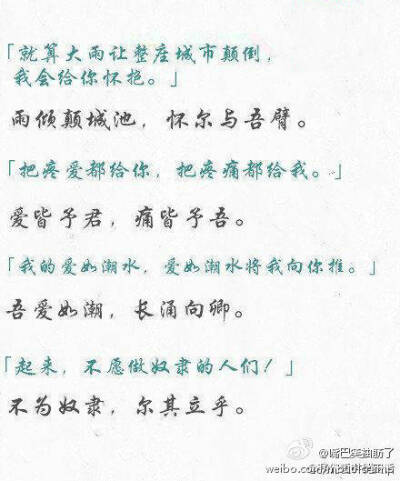 「就算大雨让整座城市颠倒，
我会给你怀抱。」
雨倾颠城池，怀尔与吾臂。
「把疼爱都给你，把疼痛都给我。」
爱皆予君，痛皆予吾。
「我的爱如潮水，爱如潮水将我向你推。」
吾爱如潮，长涌向卿。
「起来，不愿做奴隶的人们！」
不为奴隶，尔其立乎。
@嘴巴笑抽筋了
weibo.com/